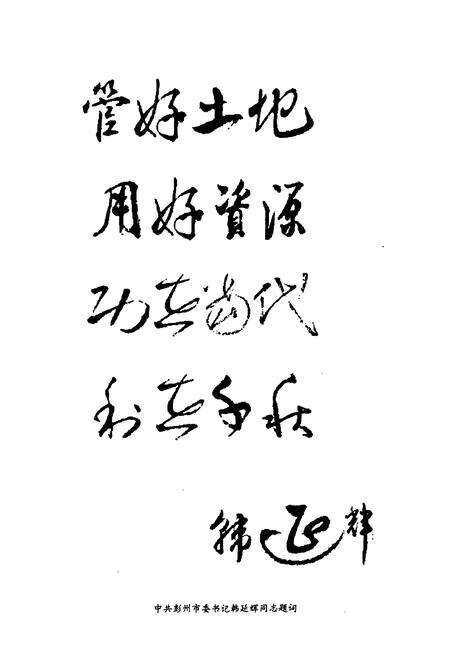 管好土地
用好資源
功在当代
利在千秋
韩延辉
中共彭州市委书记韩延辉同志题词